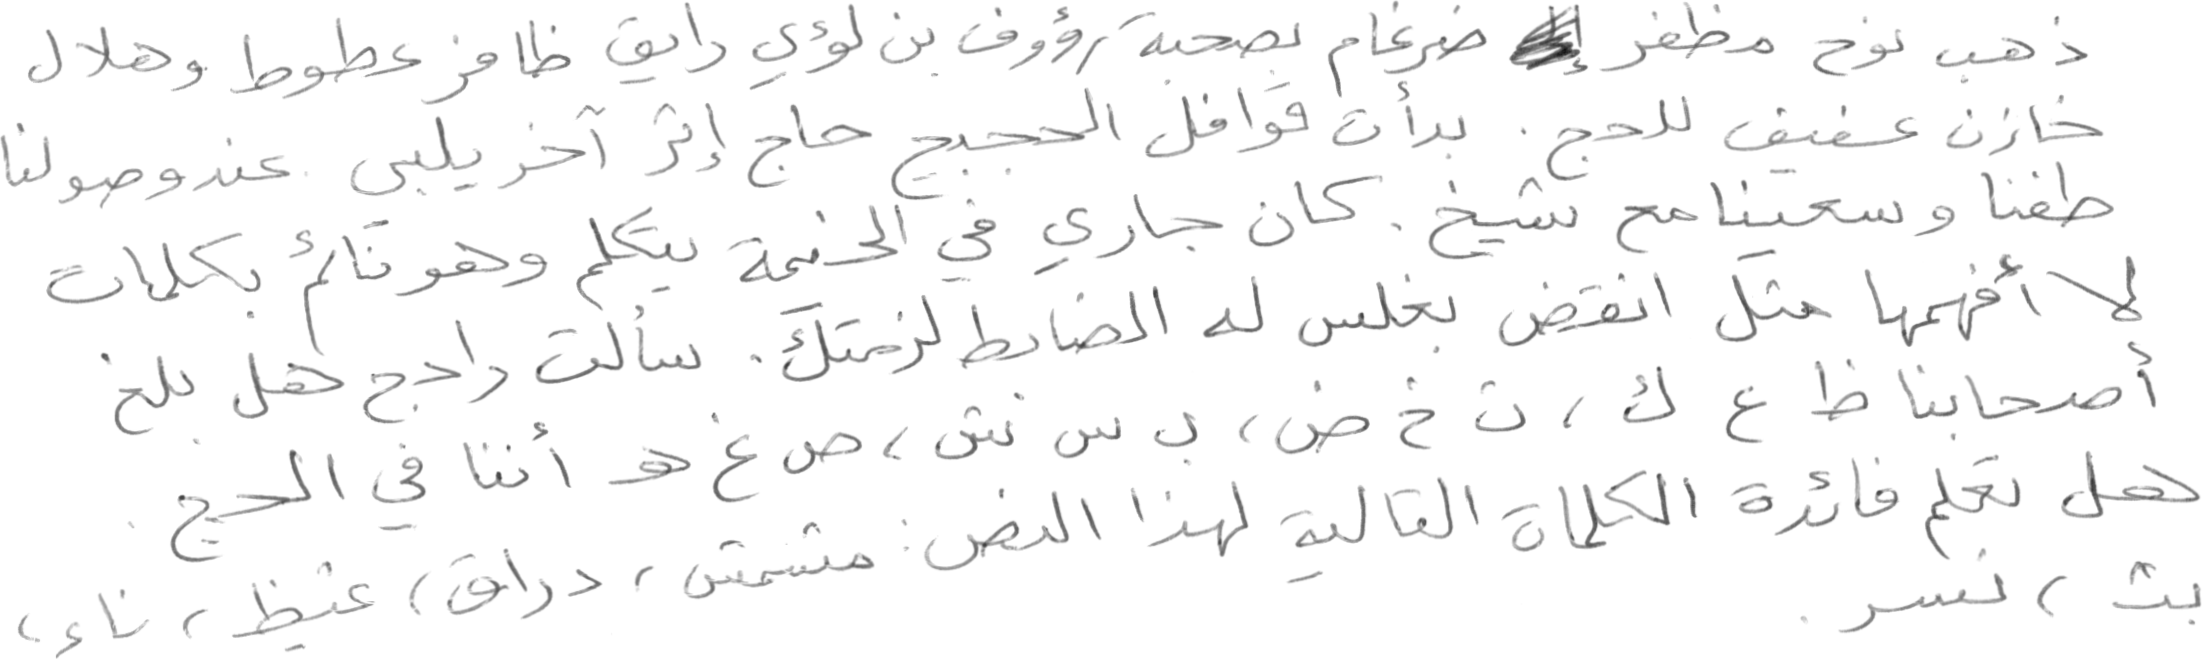 ذهب نوح مظفر ضرغام بصحبة رؤوف بن لؤي رايق ظافر عطوط وهلال
خازن عفيف للحج. بدأت قوافل الحجيج حاج إثر آخر يلبي. عند وصولنا
طفنا وسعينا مع شيخ. كان جاري في الخيمة يتكلم وهو نائم بكلمات
لا أفهمها مثل انقض بغلس له الضابط لزمتك. سألت راجح هل بلغ
أصحابنا ظ ع ك، ت خ ض، ب س ش، ص غ هـ أننا في الحج.
هل تعلم فائدة الكلمات التالية لهذا النص: مشمش، دراق، غيظ، ناء،
بث، نسر.